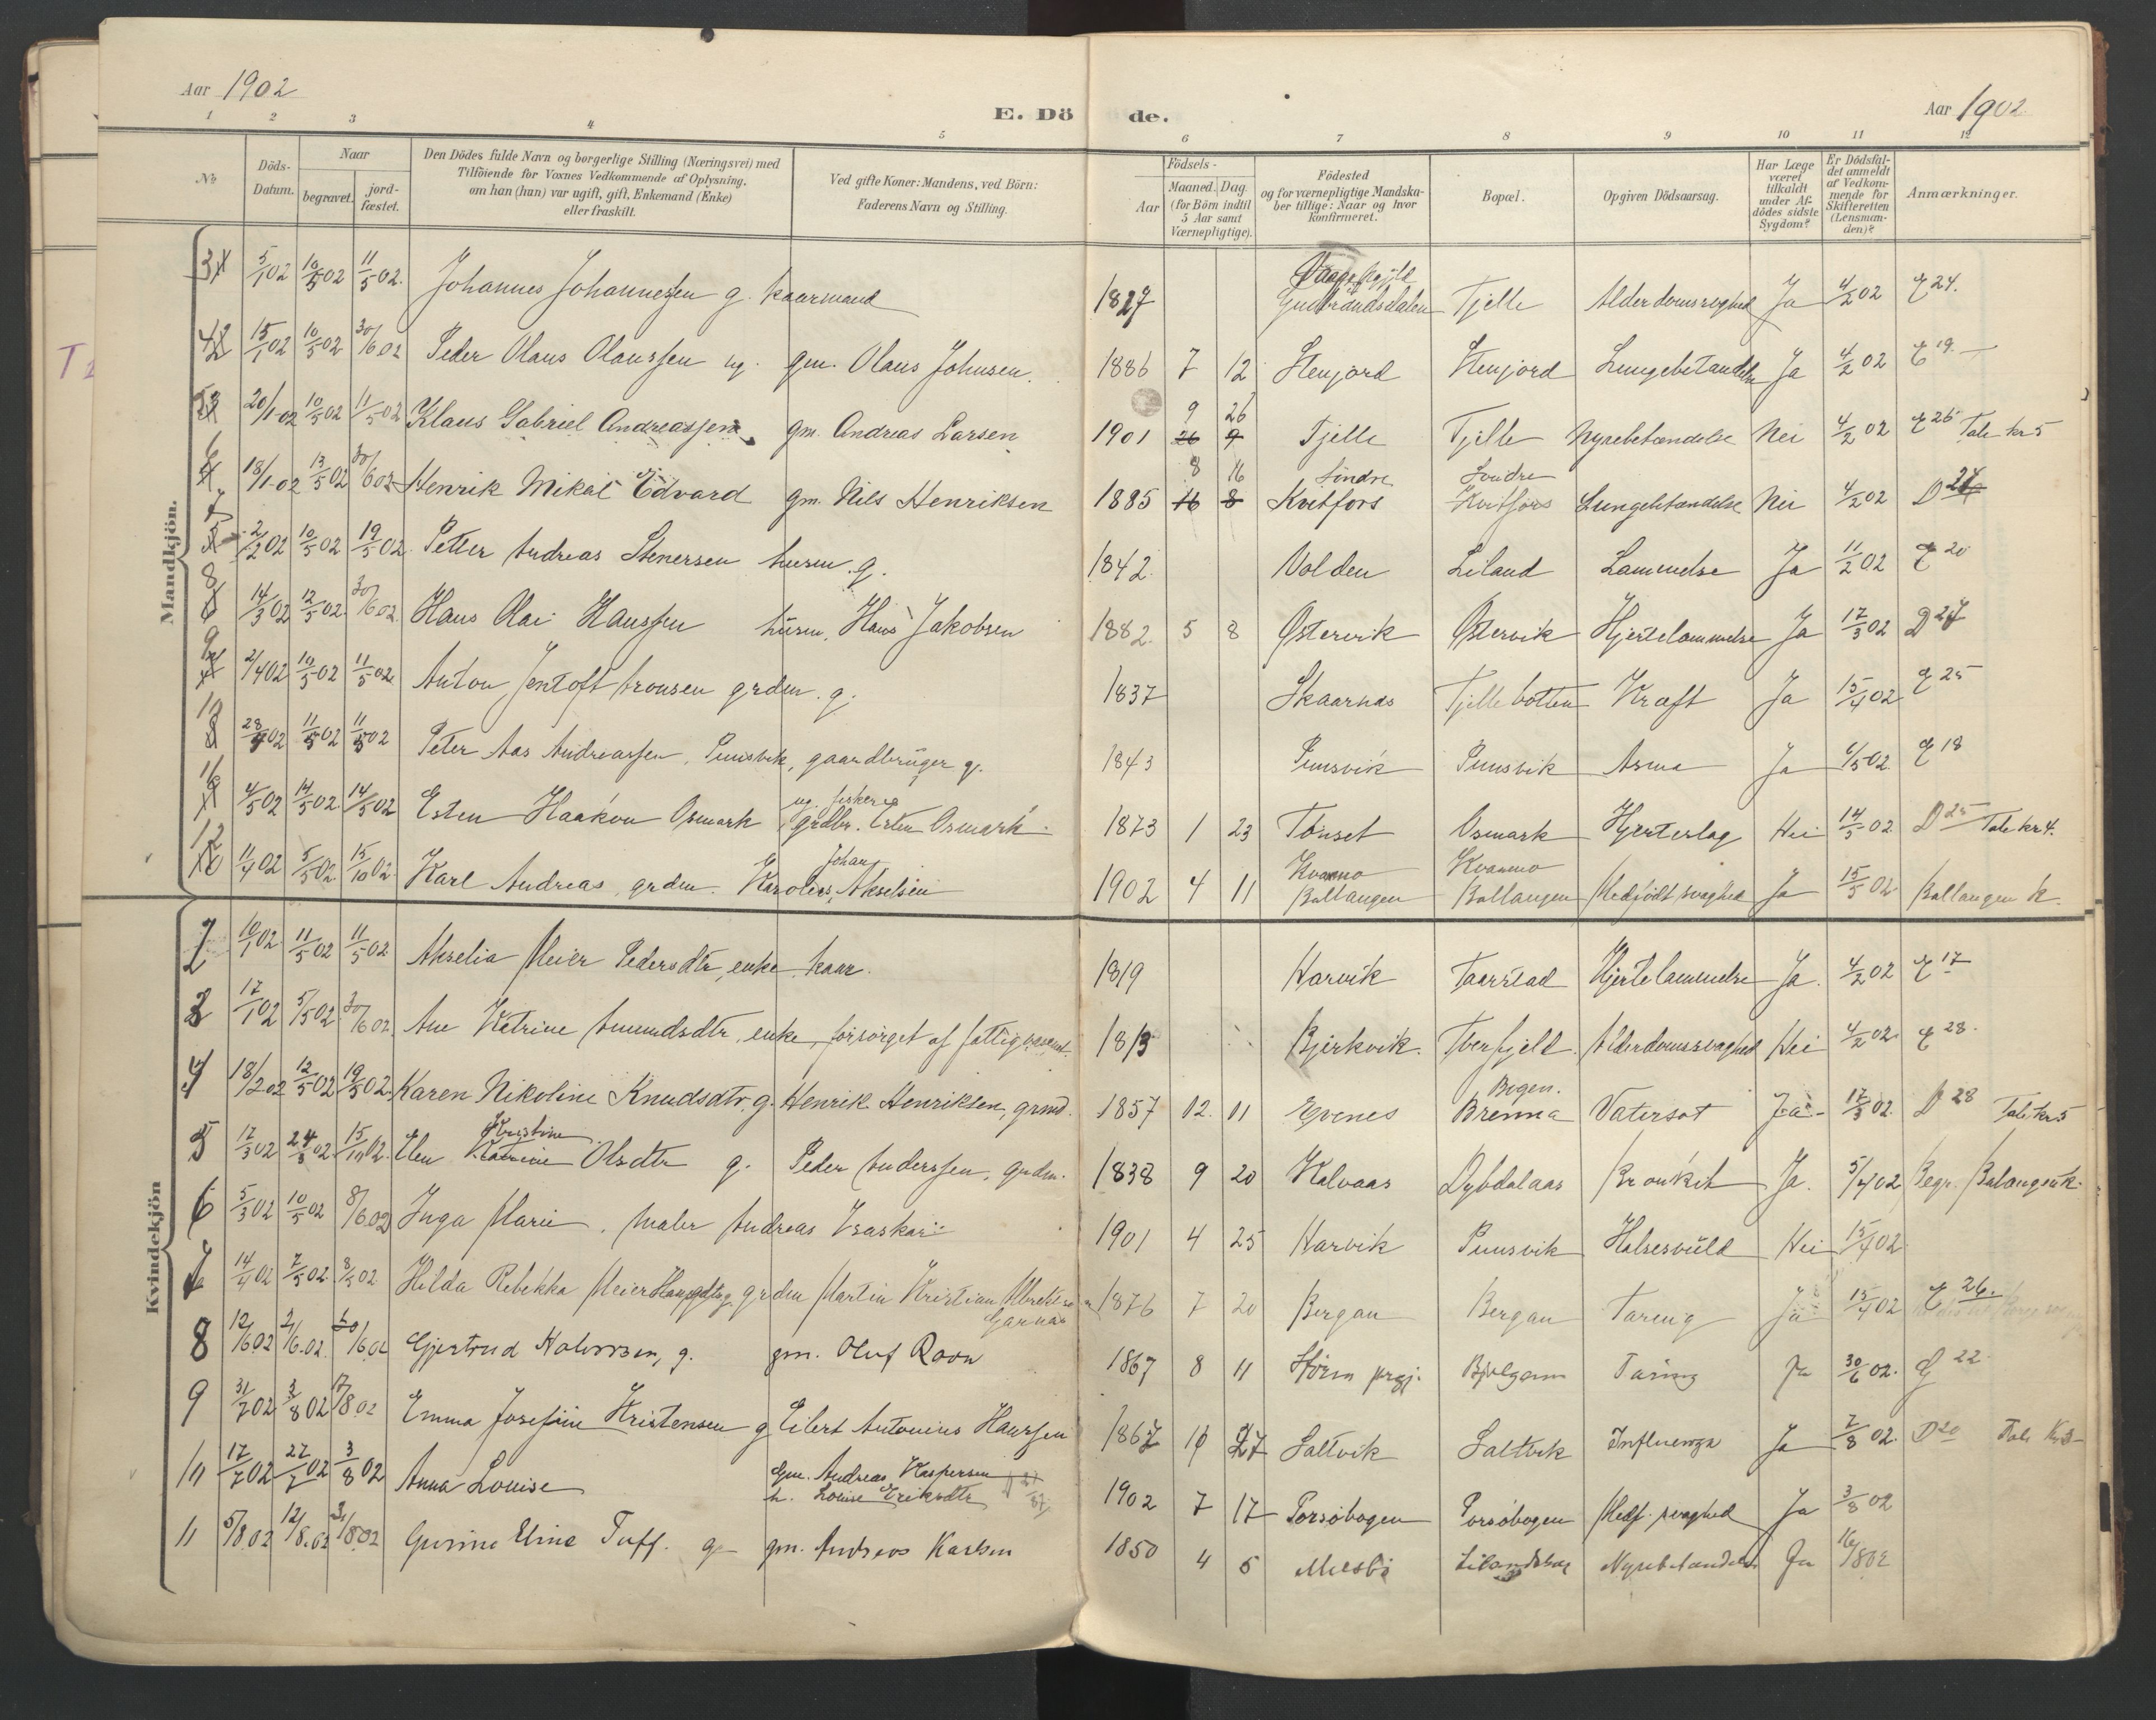 Aar 1902
E. Döde.
Aar 1902
1 2 3 4 5 6 7 8 9 10 11 12
№
Döds-Datum.
Naar
begravet.
jord-fæstet.
Den Dödes fulde Navn og borgerlige Stilling (Næringsvei) med
Tilföiende for Voxnes Vedkommende af Oplysning,
om han (hun) var ugift, gift, Enkemand (Enke)
eller fraskilt.
Ved gifte Koner: Mandens, ved Börn:
Faderens Navn og Stilling.
Födsels-
Aar
Maaned. Dag.
(for Börn indtil
5 Aar samt
Værnepligtige).
Födested
og for værnepligtige Mandska-
ber tillige: Naar og hvor
konfirmeret.
Bopæl.
Opgiven Dödsaarsag.
Har Læge
været
tilkaldt
under Af-
dödes sidste
Sygdom?
Er Dödsfal-
det anmeldt
af Vedkom-
mende for
Skifteretten
(Lensman-
den)?
Anmærkninger.
Mandkjön.
3 5/1 02 10/5 02 11/5 02. Johannes Johannessen g. kaarmand 1827 Gudbrandsdalen Tjelle Alderdomssvaghed Ja 4/2 02 E 24.
4 15/1 02 10/5 02 30/6 02 Peder Olaus Olaussen ug. gm. Olaus Johnsen. 1886 7 12 Stenjord Stenjord Lungebetændelse Ja 4/2 02 E 19.
9 26
5 20/1 02 10/5 02 11/5 02 Klaus Gabriel Andreassen gm. Andreas Larsen 1901 26 9 Tjelle Tjelle Nyrebetændelse Nei 4/2 02 E 26 Tale kr 5
8 16 Söndre Söndre
6 18/1 02 13/5 02 30/6 02 Henrik Mikal Edvard gm. Nils Henriksen 1885 16 8 Kvitfors Kvitfors Lungebetændelse Nei 4/2 02 D 24
7 2/2 02 10/5 02 19/5 02. Petter Andreas Stenersen husm. g. 1842. Volden Liland Lammelse Ja 11/2 02 E 20
8 14/3 02 12/5 02 30/6 02. Hans Olai Hanssen husm. Hans Jakobsen 1882. 5 8 Østervik Østervik Hjertelammelse Ja 17/3 02 D 27
9 2/4 02 10/5 02 11/5 02. Anton Jentoft Aronsen grdm. g. 1837 Skaarnes Tjellebotten Kræft Ja 15/4 02 E 25
10 28/4 02 11/5 02 11/5 02 Peter Aas Andreassen, Punsvik, gaardbruger g. 1843 Punsvik Punsvik Asma Ja 6/5 02. E 18
ug. fisker
11 4/5 02 14/5 02 14/5 02 Esten Haakon Osmark grdbr. Esten Osmark 1873 1 23 Tönset Osmark Hjerteslag Nei 14/5 02 D 25 Tale kr 4.
Johan Kvanmo Kvanmo
12 11/4 02 5/5 02 15/10 02. Karl Andreas grdm. Karolius Akselsen 1902 4 11 Ballangen Ballangen Medfödt svaghed Ja 15/5 02 Ballangen k.
Kvindekjön
2 10/1 02 11/5 02 11/5 02 Akselia Meier Pedersdtr, enke, kaar. 1819 Narvik Taarstad Hjertelammelse Ja. 4/2 02 E 17
3 17/1 02 5/5 02 30/6 02. Ane Katrine Amundsdtr, enke, forsörget af fattigvæsenet. 1813 Bjerkvik. Tverfjeld. Alderdomssvaghed Nei 4/2 02 E 28.
Bogen.
4 18/2 02 12/5 02 19/5 02. Karen Nikoline Knudsdtr. g. Henrik Henriksen, grmd. 1857 12. 11 Evenes Brenna Vatersot Ja 17/3 02. D 28 Tale kr 5
Kristine
5 17/3 02 24/3 02 15/10 02. Elen Katrine Olsdtr g. Peder Anderssen, grdm. 1838 9 20 Kalvaas Dybdalaas Bronkit Ja. 5/4 02 Begr. Balangen k.
6 5/3 02 10/5 02 8/6 02 Inga Marie. maler Andreas Vraskar 1901 4 25 Narvik Punsvik Halsesvuld Nei 15/4 02
7 14/4 02 7/5 02 8/5 02 Hilda Rebekka Meier Hansdtr g grdm Martin Kristian Albrektsen 1876 7 20 Bergan Bergan Tæring Ja 15/4 02 E 26.
8 12/6 02 2/6 02. 20/6 02 Gjertrud Halvorsen, g. gm. Oluf Raon 1867 8 11 Stören prgj. Bjelgam Tæring Ja 30/6 02. E 22
9 31/7 02 3/8 02 17/8 02 Emma Josefine Kristensen g Eilert Antonius Hanssen 1867 10 27 Saltvik Saltvik Influenza Ja 7/8 02. D 20 Tale Kr 3
11 17/7 02 27/7 02 3/8 02 Anna Louise gm. Andreas Kaspersen 1902 7 17 Porsöbogen Porsöbogen Medf. svaghed Ja 3/8 02
h. Louise Eriksdtr
11 5/8 02 12/8 02 31/8 02 Gurine Elina Tuff. g gm. Andreas Karlsen 1850 4 5 Milsbö Lilandskar Nyrebetændelse Ja 16/8 02